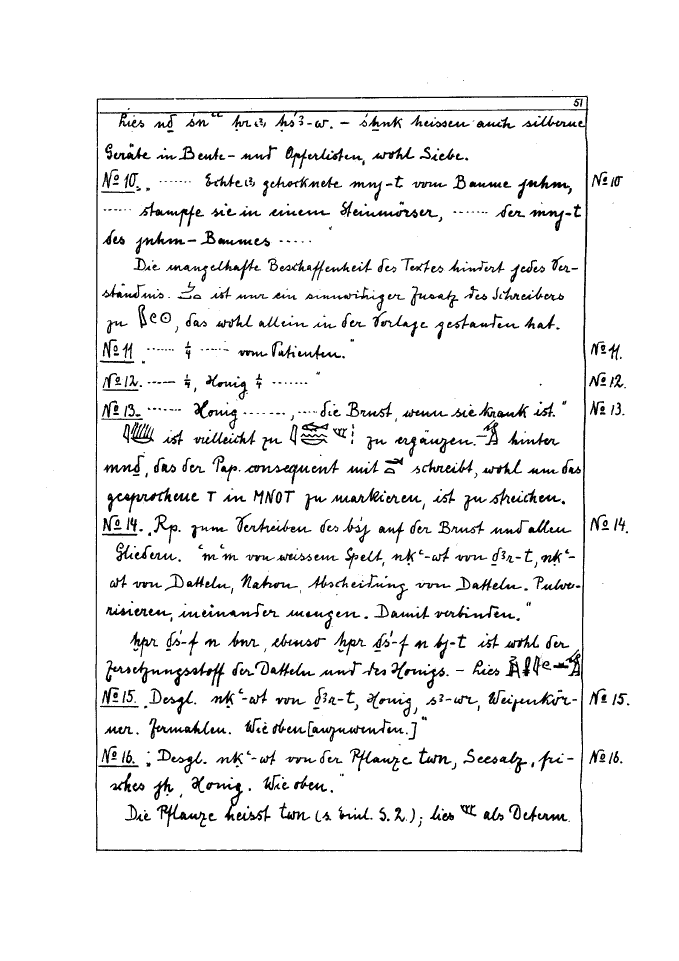 51
lies nḏ śn῾῾ ḥr ḥś3-w. – śḥnk heissen auch silberne
Geräte in Beute- und Opferlisten, wohl Siebe.
№ 10. „ ...... Echte getrocknete mnj-t vom Baume jnhm, № 10
...... stampfe sie in einem Steinmörser, ....... der mnj-t
des jnhm-Baumes ....."
Die mangelhafte Beschaffenheit des Textes hindert jedes Ver-
ständnis. ist nur ein sinnwidriger Zusatz des Schreibers
zu , das wohl allein in der Vorlage gestanden hat.
№ 11 ...... ¼ ...... vom Patienten." № 11.
№ 12. ...... ¼, Honig ¼ ......." № 12.
№ 13. ....... Honig ......., .... die Brust, wenn sie krank ist." № 13.
ist vielleicht zu zu ergänzen. – hinter
mnḏ, das der Pap. consequent mit schreibt, wohl um das
gesprochene T in MNOT zu markieren, ist zu streichen.
№ 14. „Rp. zum Vertreiben des bśj auf der Brust und allen № 14.
Gliedern. ῾m῾m von weissem Spelt, nk῾-wt von ḏ3r-t, nk῾-
wt von Datteln, Natron, Abscheidung von Datteln. Pulve-
risieren, ineinander mengen. Damit verbinden."
ḫpr ḏś-f n bnr, ebenso ḫpr ḏś-f n bj-t ist wohl der
Zersetzungsstoff der Datteln und des Honigs. – lies
№ 15. „Desgl. nk῾-wt von ḏ3r-t, Honig, s3-wr, Weizenkör- № 15.
ner. Zermahlen. Wie oben [anzuwenden.]"
№ 16. „Desgl. nk῾-wt von der Pflanze twn, Seesalz, fri- № 16.
sches jḥ, Honig. Wie oben."
Die Pflanze heisst twn (s. Einl. S. 2.); lies als Determ.